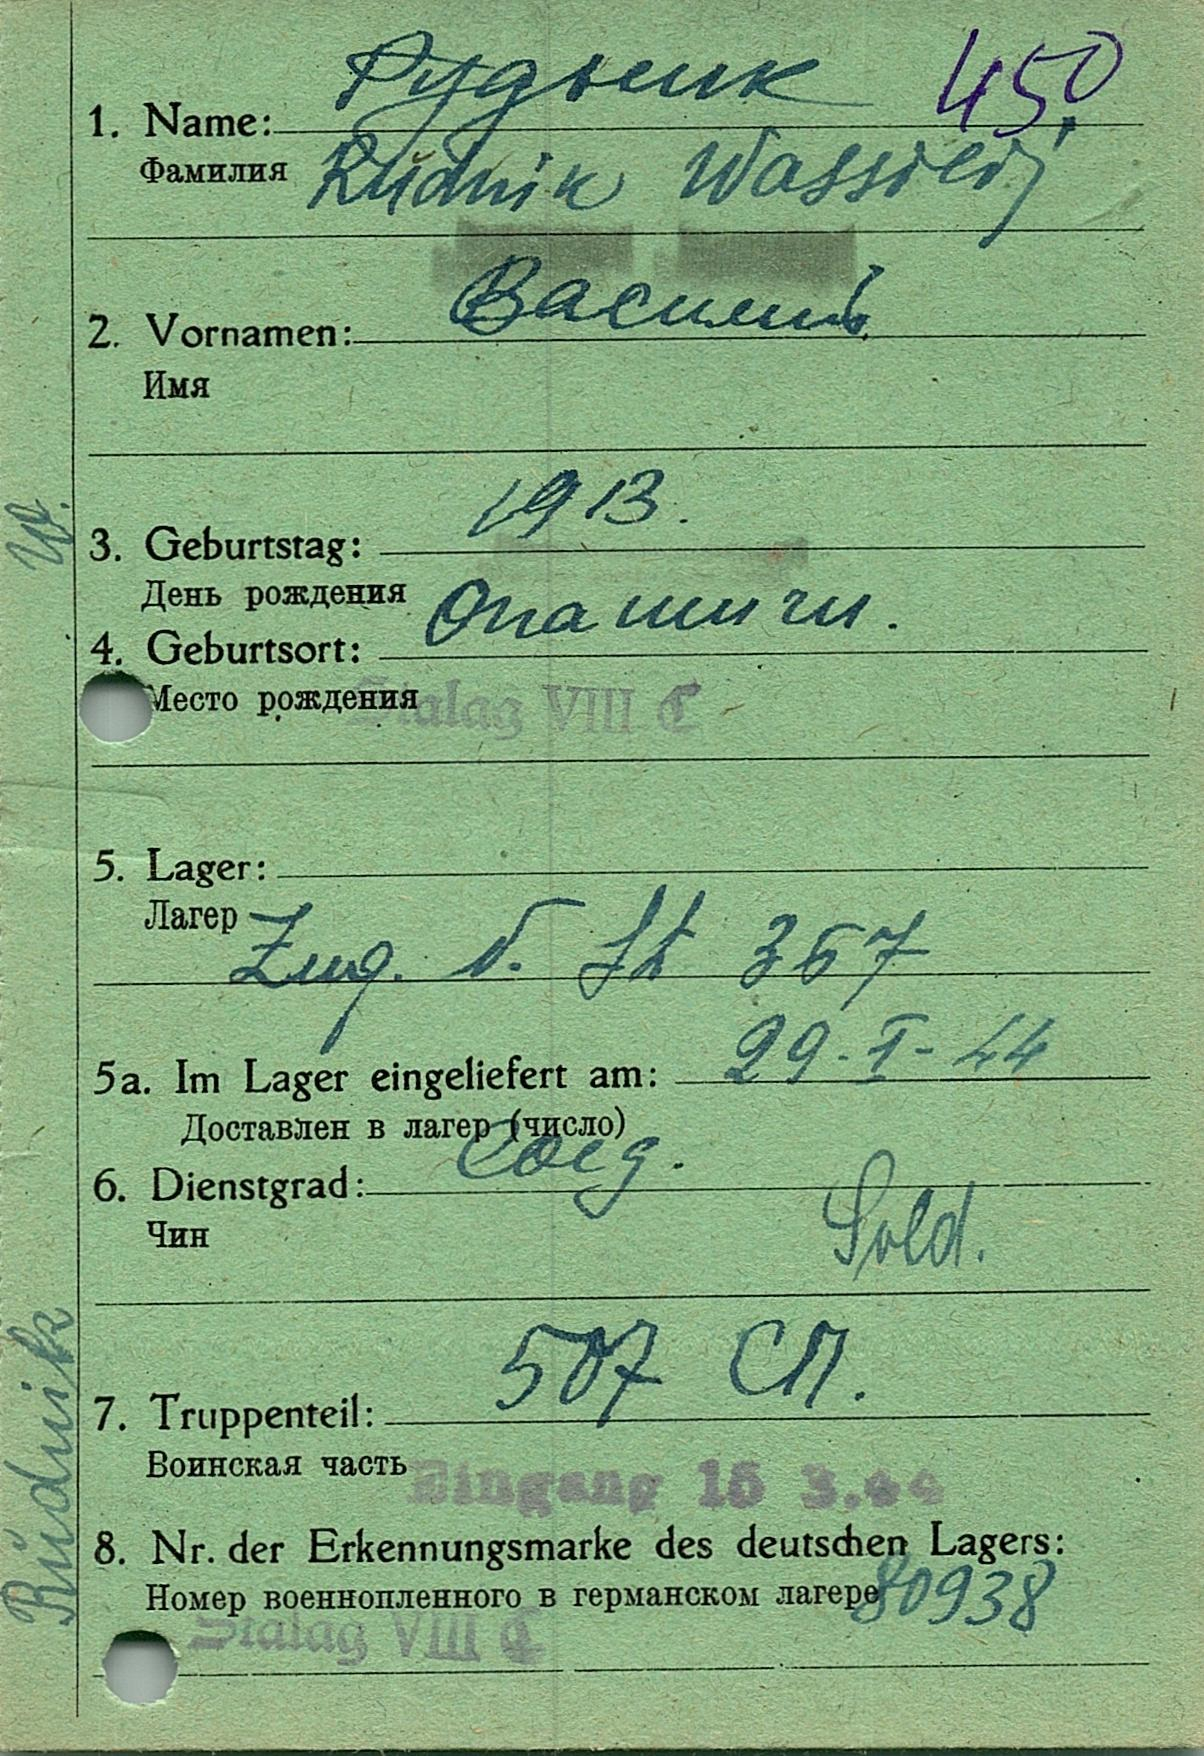 Рудник 450
1. Name:
Фамилия Rudnik Wassilij
Василий
2. Vornamen:
Имя
W.
1913.
3. Geburtstag:
День рождения
Опашичи.
4. Geburtsort:
Место рождения
Stalag VIII C
5. Lager:
Лагер
Zug. v. St 367
29-I-44
5a. Im Lager eingeliefert am:
Доставлен в лагер (число)
6. Dienstgrad:
Чин Sold.
507 СП.
7. Truppenteil:
Воинская часть
Eingang 15 3.44
8. Nr. der Erkennungsmarke des deutschen Lagers:
Номер военнопленного в германском лагере 80938
Stalag VIII C
Rudnik